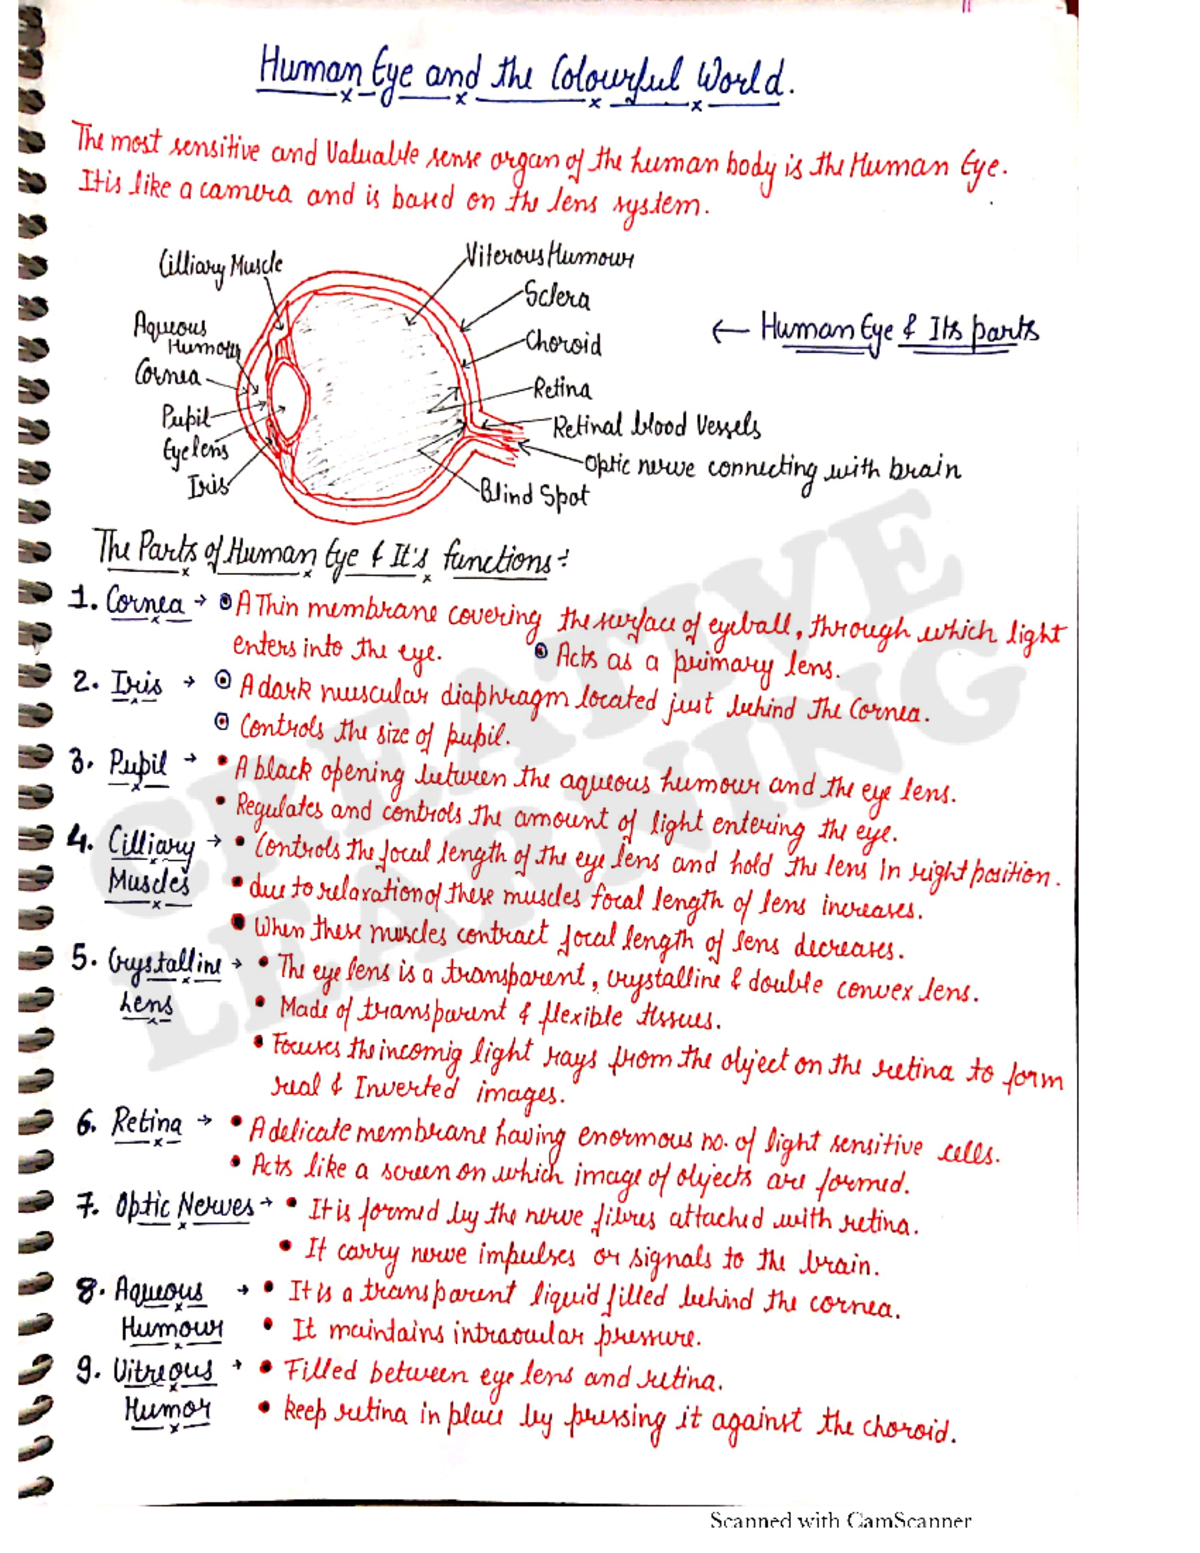 Human Eye and the Colourful World.
The most sensitive and Valuable sense organ of the human body is the Human Eye.
It is like a camera and is based on the lens system.
Cilliary Muscle
Viterous Humour
Sclera
Aqueous
Humour
Choroid
← Human Eye & Its parts
Cornea
Retina
Pupil
Retinal blood Vessels
Eye lens
Optic nerve connecting with brain
Iris
Blind Spot
The Parts of Human Eye & It's functions:
1. Cornea → A Thin membrane covering the surface of eyeball, through which light
enters into the eye. Acts as a primary lens.
2. Iris → A dark muscular diaphragm located just behind the Cornea.
Controls the size of pupil.
3. Pupil → • A black opening between the aqueous humour and the eye lens.
• Regulates and controls the amount of light entering the eye.
4. Cilliary → • Controls the focal length of the eye lens and hold the lens in right position.
Muscles • due to relaxation of these muscles focal length of lens increases.
• When these muscles contract focal length of lens decreases.
5. Crystalline → • The eye lens is a transparent, crystalline & double convex lens.
Lens • Made of transparent & flexible tissues.
• Focuses the incomig light rays from the object on the retina to form
real & Inverted images.
6. Retina → • A delicate membrane having enormous no. of light sensitive cells.
• Acts like a screen on which image of objects are formed.
7. Optic Nerves → • It is formed by the nerve fibres attached with retina.
• It carry nerve impulses or signals to the brain.
8. Aqueous → • It is a transparent liquid filled behind the cornea.
Humour • It maintains intraocular pressure.
9. Vitreous → • Filled between eye lens and retina.
Humor • keep retina in place by pressing it against the choroid.
CREATIVE
LEARNING
Scanned with CamScanner